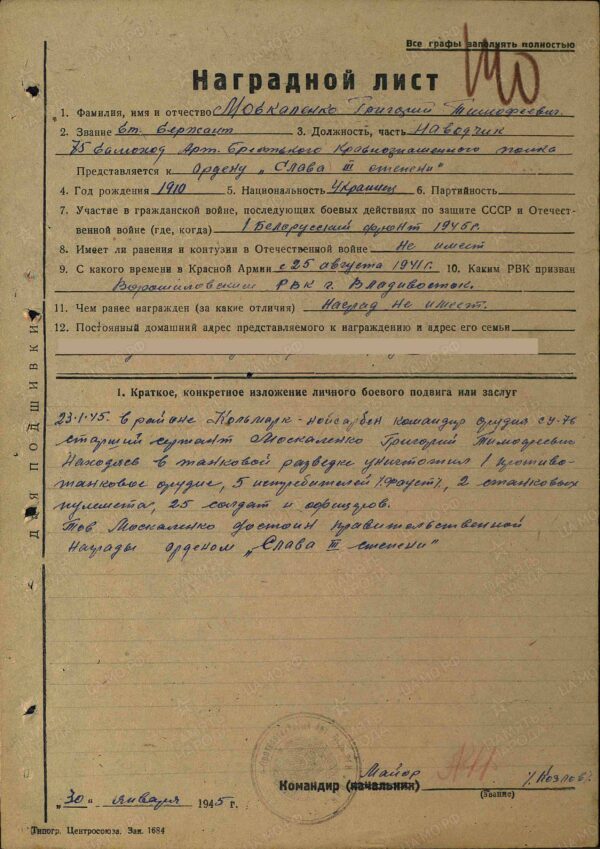 Все графы заполнять полностью
Наградной лист
1. Фамилия, имя и отчество Москаленко Григорий Тимофеевич.
2. Звание Ст. Сержант 3. Должность, часть Наводчик
75 Самоход Арт. Краснознаменного полка
Представляется к Ордену „Слава III степени"
4. Год рождения 1910 5. Национальность Украинец 6. Партийность
7. Участие в гражданской войне, последующих боевых действиях по защите СССР и Отечест-
венной войне (где, когда) 1 Белорусский фронт 1945 г.
8. Имеет ли ранения и контузии в Отечественной войне Не имеет
9. С какого времени в Красной Армии с 25 августа 1941 г. 10. Каким РВК призван
Ворошиловским РВК г. Владивосток.
11. Чем ранее награжден (за какие отличия) Наград не имеет.
12. Постоянный домашний адрес представляемого к награждению и адрес его семьи
I. Краткое, конкретное изложение личного боевого подвига или заслуг
23.1.45. в районе Кольмарк - нойсарбен командир орудия СУ-76
старший сержант Москаленко Григорий Тимофеевич
Находясь в танковой разведке уничтожил 1 противо-
танковое орудие, 5 истребителей (фауст), 2 станковых
пулемета, 25 солдат и офицеров.
Тов Москаленко достоин правительственной
Награды орденом „Слава III степени"
ДЛЯ ПОДШИВКИ
Майор
Командир (начальник) /Козлов/
(звание)
„30" января 1945 г.
Типогр. Центросоюза. Зак. 1684